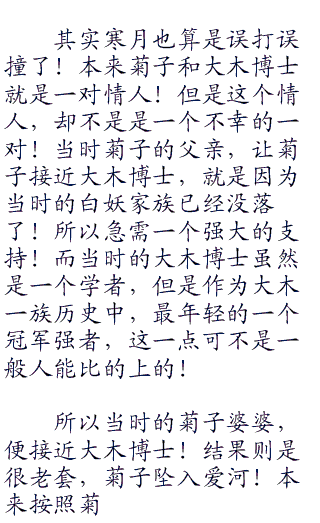 其实寒月也算是误打误
撞了！本来菊子和大木博士
就是一对情人！但是这个情
人，却不是是一个不幸的一
对！当时菊子的父亲，让菊
子接近大木博士，就是因为
当时的白妖家族已经没落
了！所以急需一个强大的支
持！而当时的大木博士虽然
是一个学者，但是作为大木
一族历史中，最年轻的一个
冠军强者，这一点可不是一
般人能比的上的！
所以当时的菊子婆婆，
便接近大木博士！结果则是
很老套，菊子坠入爱河！本
来按照菊